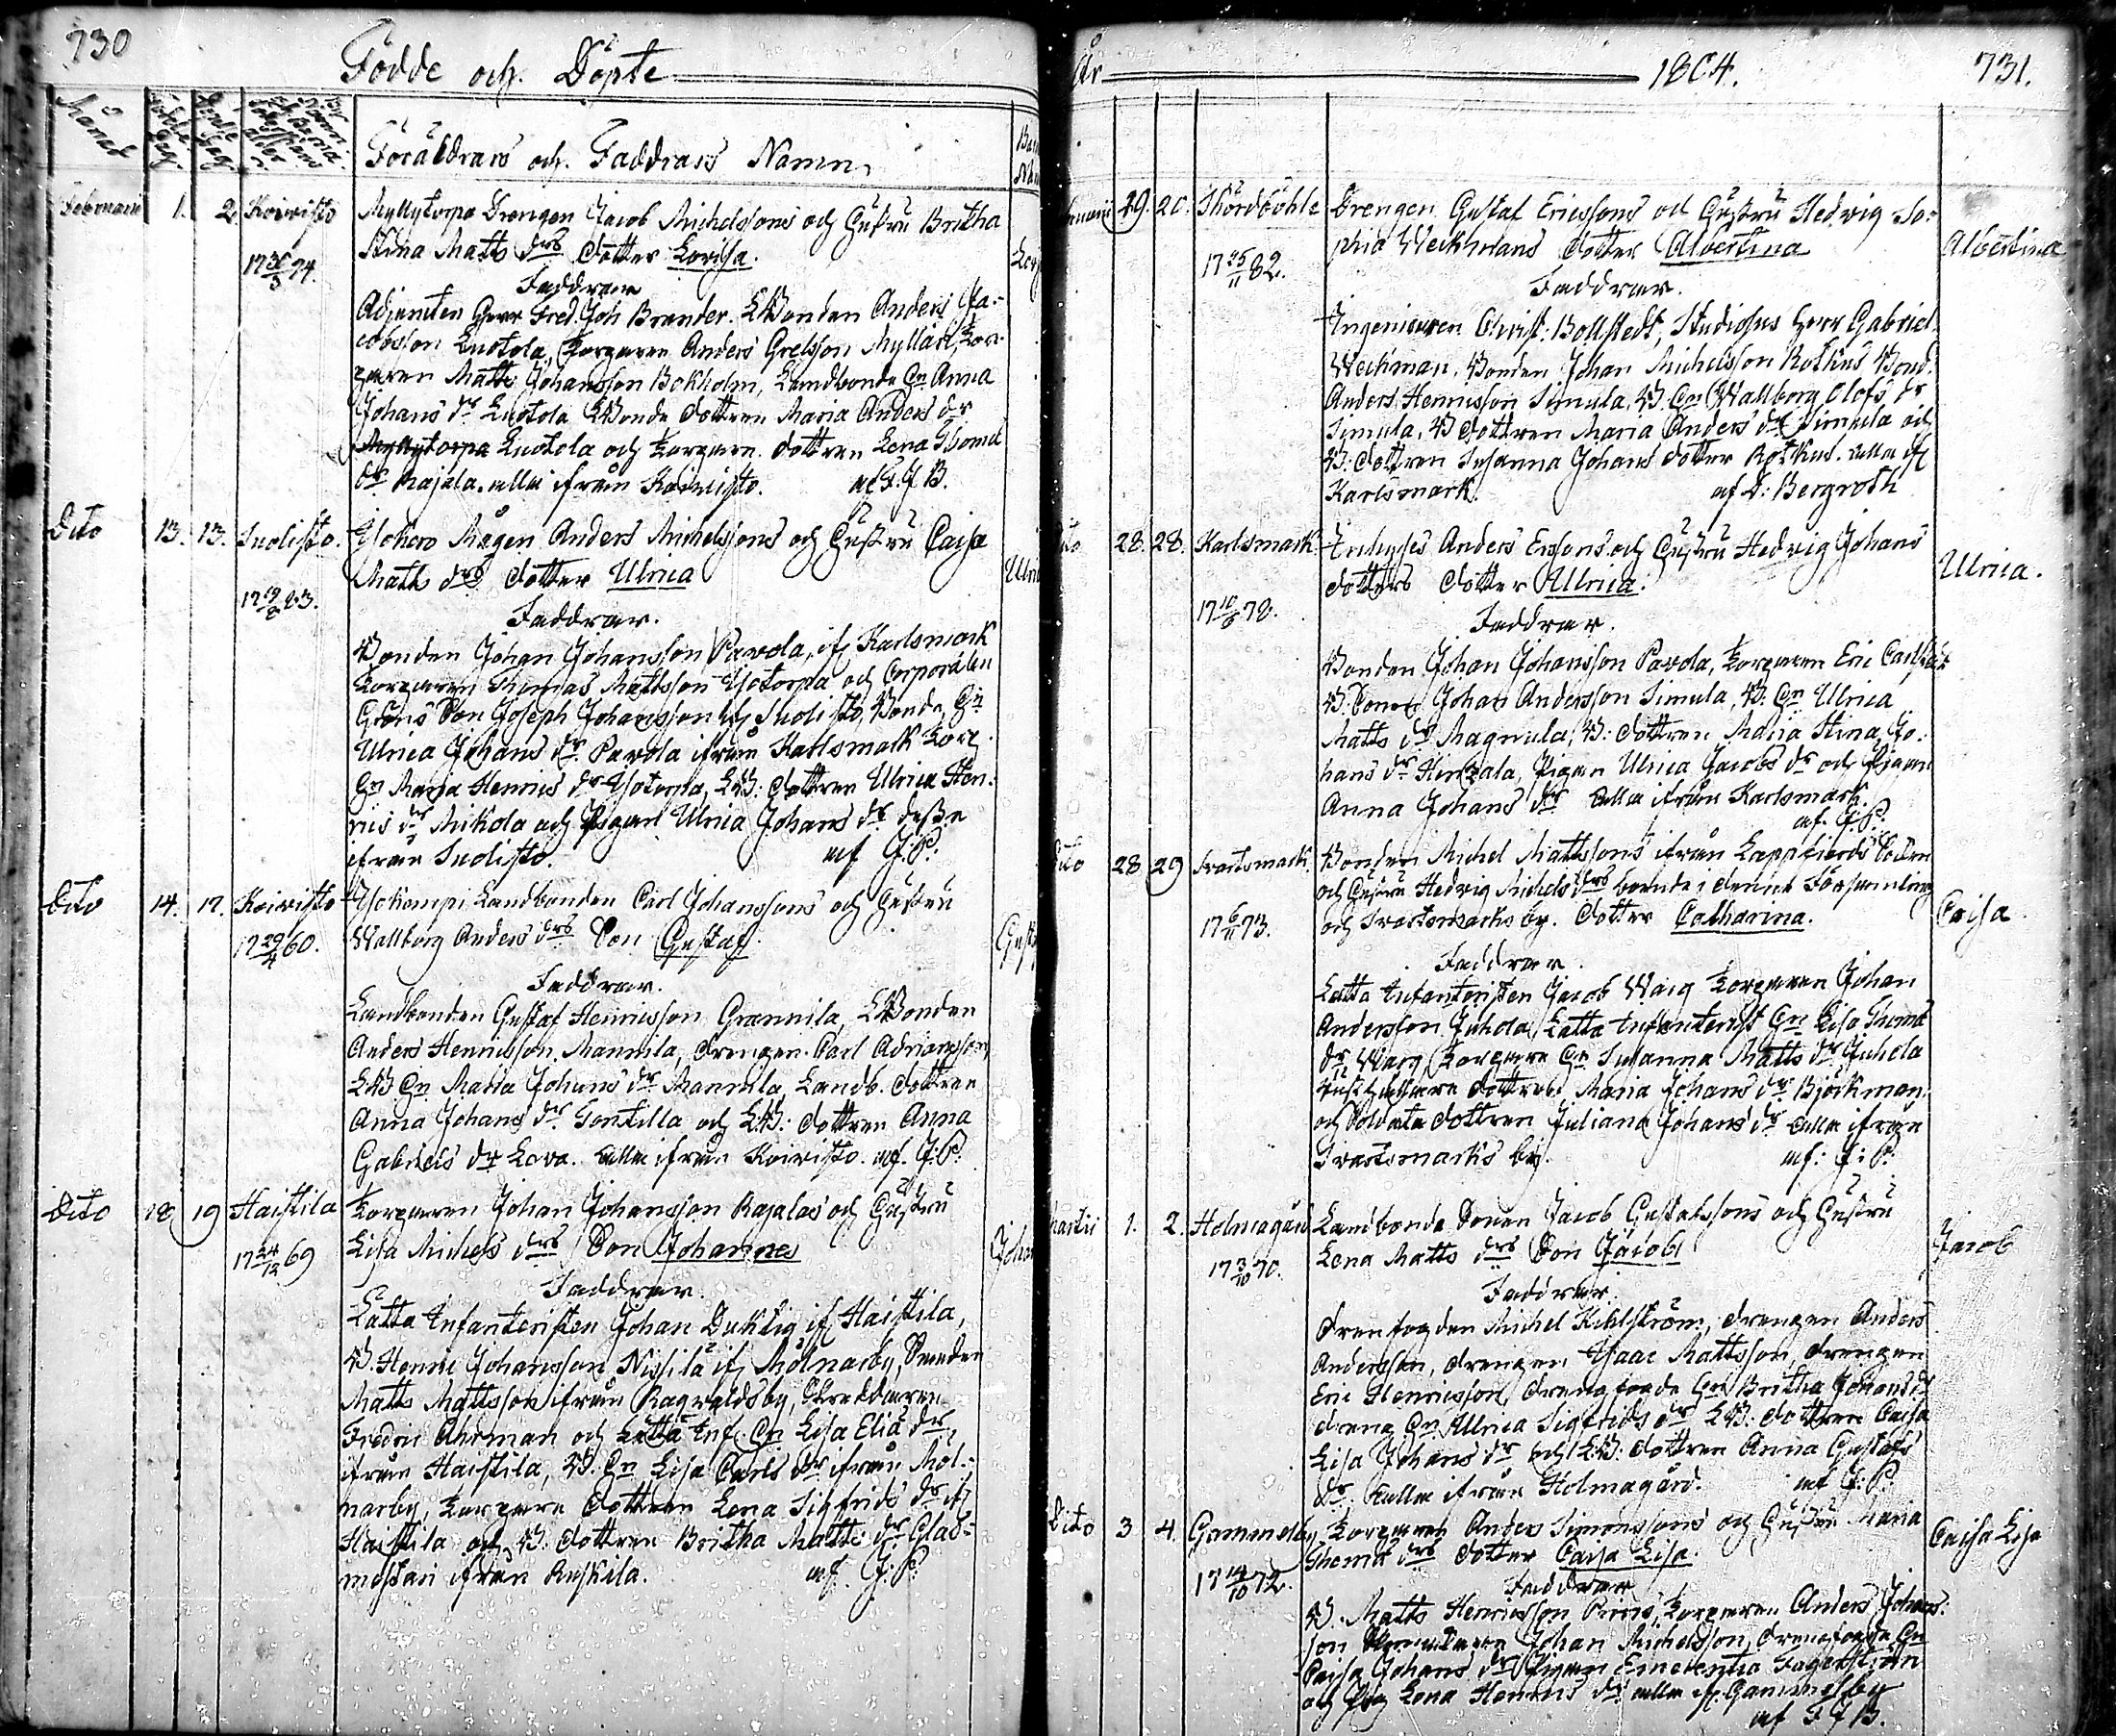 730
Födde och Döpte
Månat
Föräldrars och Faddrars Namn
Februarii 1. 2 Koivisto Myllytorpa Drengen Jacob Michelssons och Hustru Britha
Stina Matts drs dotter Lovisa.
Faddrar
Adjuncten Herr Fred. Joh Brander. LBonden Anders Ja-
cobsson Luotola, Torparen Anders Grelsson Myllari, Tor-
paren Matts Johansson Bokholm, Landbonde Hn Anna
Johans dr Luotola LBonde dottren Maria Anders dr
Myllytorpa Luotola och Torpare dottren Lena Thomæ
dr Rajala. alla ifrån Koivisto. af F. J B.
Dito 13. 13. Suolisto. Mågen Anders Michelssons och Hustru Caisa
Matts drs dotter Ulrica
Faddrar.
Bonden Johan Johansson Pavola, if Karlsmark
Torparen Thomas Mattsson Isotorpa och Corporalen
Gröns Son Joseph Johansson if Suolisto, Bonde Hn
Ulrica Johans dr Pavola ifrån Karlsmark Torp
Hn Maria Henrics dr Isotorpa, LB: dottren Ulrica Hen-
rics dr Mikola och Pigan Ulrica Johans dr desse
ifrån Suolisto. af J: P:
Dito 14. 17. Koivisto Isokempi Landbonden Carl Johanssons och Hustru
17 29/4 60. Wallborg Anders drs Son Gustaf.
Faddrar.
Landbonden Gustaf Henricsson Grannila, LBonden
Anders Henricsson Mannila, drengen Carl Adriansson,
LB Hn Maria Johans dr Mannila, Landb. dottren
Anna Johans dr Tontilla och LB: dottren Anna
Gabriels dr Lava. alla ifrån Koivisto. af. J: P:
Dito 18 19 Haistila Torparen Johan Johansson Rajalas och Hustru
17 24/12 69 Lisa Michels drs Son Johannes
Faddrar.
Lätta Infanteristen Johan Duktig if Haistila,
B. Henric Johansson Nissilä if Molnarby, Smeden
Matts Mattsson ifrån Ragvaldsby, Skreddaren
Fredric Ahrman och Lätta Inf. Hn Lisa Eliæ dr
ifrån Haistila, B. Hn Lisa Carls dr ifrån Mol-
narby, Torpare dottren Lena Sigfrids dr if
Haistila och B. dottren Britha Matts dr Glas-
mästari ifrån Ruskila. af J: P:
År 1804. 731.
29. 20. Thordböhle Drengen Gustaf Ericssons och Hustru Hedvig So-
phia Weckmans dotter Albertina Albertina
Faddrar.
Ingenieuren Christ: Bollstedt, Studiosus Herr Gabriel
Weckman, Bonden Johan Michelsson Rotkus Bond.
Anders Henricsson Simula, B. Hn Wallborg Olofs dr
Simula, B dottren Maria Anders dr Simula och
B: dottren Susanna Johans dotter Rotkus. alla if
Karlsmark. af A: Bergroth
28. 28. Karlsmark. Inhyses Anders Erssons och Hustru Hedvig Johans
dotters dotter Ulrica. Ulrica.
Faddrar.
Bonden Johan Johansson Pavola, Torparen Eric
B. Sonen Johan Andersson Simula, B. Hn Ulrica
Matts dr Magnula, B: dottren Maria Stina Jo-
hans dr Hinzala, Pigan Ulrica Jacobs dr och Pigan
Anna Johans dr alla ifrån Karlsmark.
af. J: P.
28 29 Svartsmark. Bonden Michel Mattssons ifrån Lappfierds Socken
och Hustru Hedvig Michels drs boende i denna Församling
och Svartsmarks by. dotter Catharina. Caisa
Faddrar.
Lätta Infanteristen Jacob Warg Torparen Johan
Andersson Juhola, Lätta Infanterist Hn Lisa Thomæ
dr Warg, Torpare Hn Susanna Matts dr Juhola
dottren Maria Johans dr Björkman
och Soldate dottren Juliana Johans dr alla ifrån
Svartsmarks by. af: J: P.
Martii 1. 2. Holmagård Landbonde Sonen Jacob Gustafssons och Hustru
17 3/10 70. Lena Matts drs Son Jacob Jacob
Faddrar.
Drenfogden Michel Kihlström, drengen Anders
Andersson, drengen Isaac Mattsson drengen
Eric Henricsson, drengfogde Hn Britha Johans dr
dreng Hn Ulrica Sigfrids dr LB. dottren Caisa
Lisa Johans dr och LB: dottren Anna Gustafs
dr. alla ifrån Holmagård. af J: P.
Dito 3 4. Gammelby Torparen Anders Simonssons och Hustru Maria
Thomæ drs dotter Caisa Lisa. Caisa Lisa
Faddrar
B. Matts Henricsson Prins, Torparen Anders Johans-
son Johan Michelsson, drengfogde Hn
Caisa Johans dr, Pigan Emerentia Fagerström
och Pig Lena Henrics dr alla if. Gammelby
af F J B.